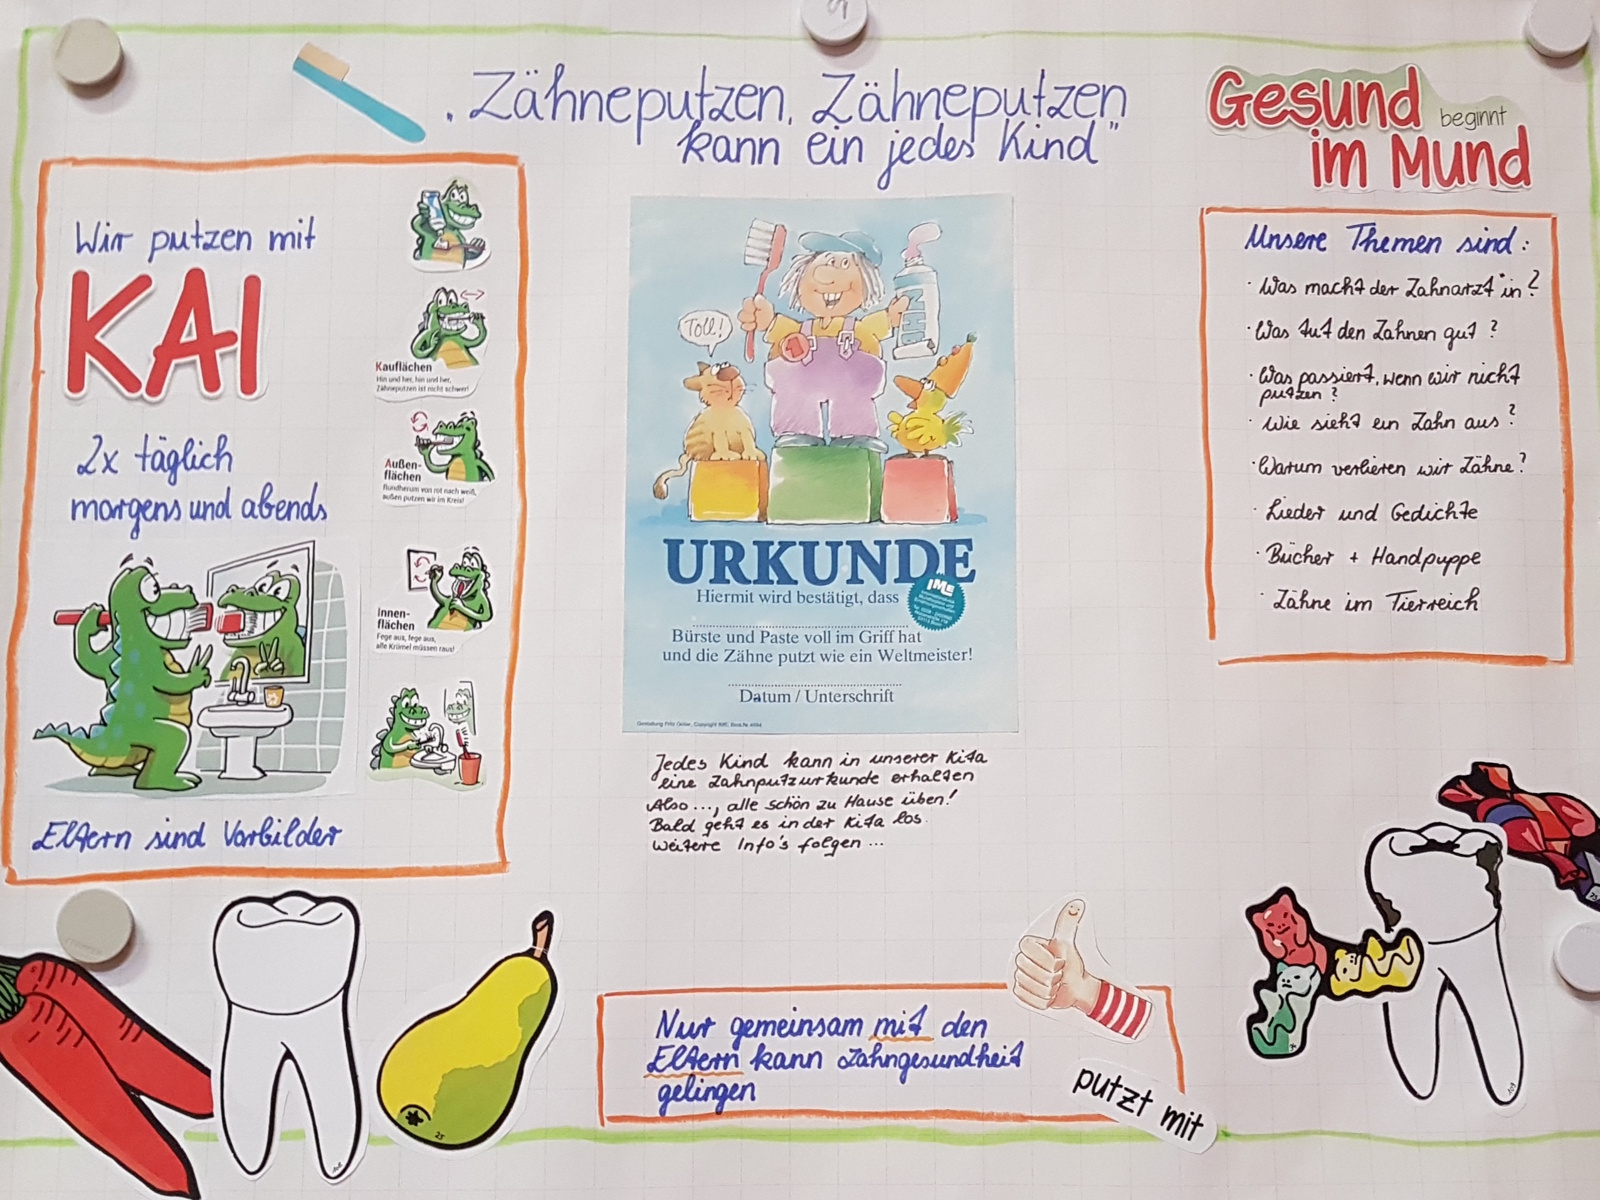 „Zähneputzen, Zähneputzen
kann ein jedes Kind"
Gesund
beginnt
im Mund
Wir putzen mit
KAI
2x täglich
morgens und abends
Eltern sind Vorbilder
Kauflächen
Hin und her, hin und her,
Zähneputzen ist nicht schwer!
Außen-
flächen
Rundherum von rot nach weiß,
außen putzen wir im Kreis!
Innen-
flächen
Fege aus, fege aus,
alle Krümel müssen raus!
Toll!
URKUNDE
IME
Hiermit wird bestätigt, dass
Bürste und Paste voll im Griff hat
und die Zähne putzt wie ein Weltmeister!
Datum / Unterschrift
Jedes Kind kann in unserer Kita
eine Zahnputzurkunde erhalten
Also ..., alle schön zu Hause üben!
Bald geht es in der Kita los.
Weitere Info's folgen ...
Unsere Themen sind:
· Was macht der Zahnarzt*in?
· Was tut den Zahnen gut?
· Was passiert, wenn wir nicht
putzen?
· Wie sieht ein Zahn aus?
· Warum verlieren wir Zähne?
· Lieder und Gedichte
· Bücher + Handpuppe
· Zähne im Tierreich
Nur gemeinsam mit den
Eltern kann Zahngesundheit
gelingen
putzt mit
25